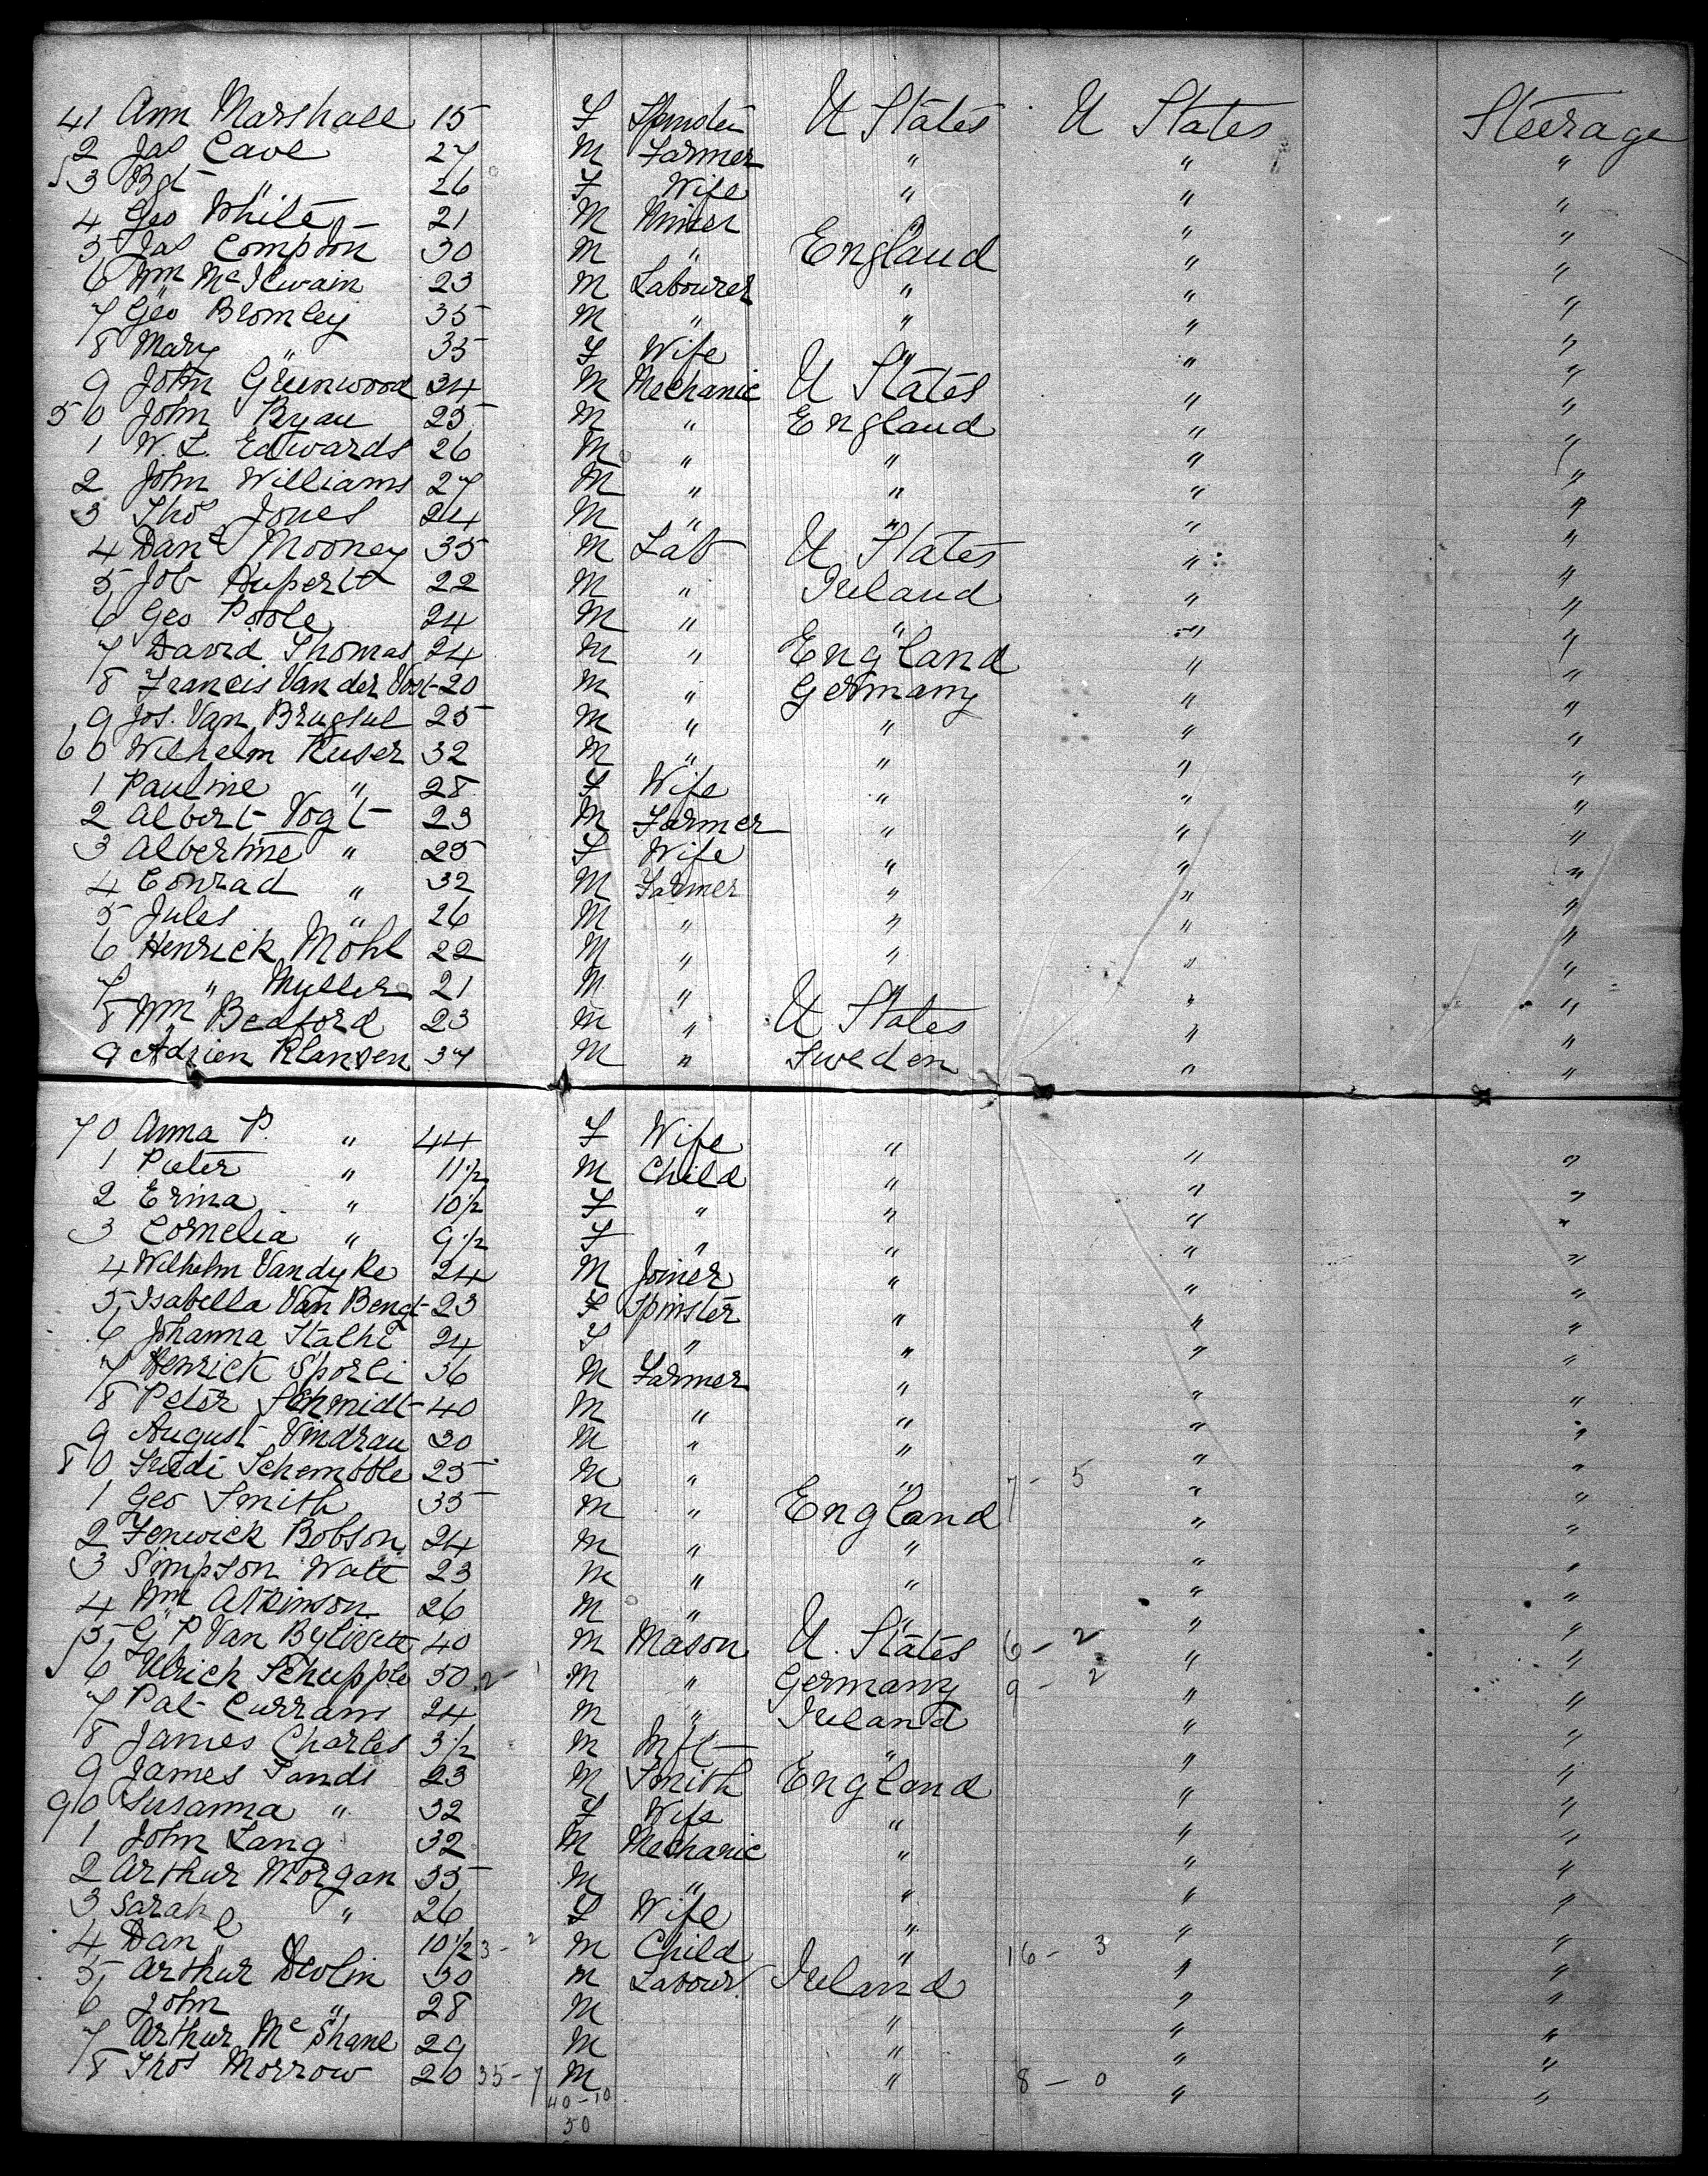 41 Ann Marshall 15 F Spinster U States U States Steerage
2 Jas Cave 27 M Farmer " " "
3 Bgt " 26 F Wife " " "
4 Geo White 21 M Miner " " "
5 Jas Compton 30 M " England " "
6 Wm McIlwain 23 M Labourer " " "
7 Geo Bromley 35 M " " " "
8 Mary " 35 F Wife " " "
9 John Greenwood 34 M Mechanic U States " "
50 John Ryan 25 M " England " "
1 W. L. Edwards 26 M " " " "
2 John Williams 27 M " " " "
3 Thos Jones 24 M " " " "
4 Danl Mooney 35 M Lab U States " "
5 Job Rupert 22 M " Ireland " "
6 Geo Poole 24 M " " " "
7 David Thomas 24 M " England " "
8 Francis Van der Vost 20 M " Germany " "
9 Jos. Van Brugsul 25 M " " " "
60 Wilhelm Kuser 32 M " " " "
1 Pauline " 28 F Wife " " "
2 Albert Vogt 23 M Farmer " " "
3 Albertine " 25 F Wife " " "
4 Conrad " 32 M Farmer " " "
5 Jules " 26 M " " " "
6 Henrick Mohl 22 M " " " "
7 " Muller 21 M " " " "
8 Wm Bedford 23 M " U States " "
9 Adrien Klansen 37 M " Sweden " "
70 Anna P. " 44 F Wife " " "
1 Pieter " 11 1/2 M Child " " "
2 Erina " 10 1/2 F " " " "
3 Cornelia " 9 1/2 F " " " "
4 Wilhelm Vandyke 24 M Joiner " " "
5 Isabella Van Bengt 23 F Spinster " " "
6 Johanna Stalhi 24 F " " " "
7 Henrick Sporli 36 M Farmer " " "
8 Peter Schmidt 40 M " " " "
9 August Vindrau 30 M " " " "
80 Fredi Schembble 25 M " " 7 - 5 " "
1 Geo Smith 35 M " England " "
2 Fenwick Bobson 24 M " " " "
3 Simpson Watt 23 M " " " "
4 Wm Atkinson 26 M " " " "
5 G P Van 40 M Mason U. States 6 - 2 " "
6 Ulrich Schupplo 50 2 - 1 M " Germany 9 - 2 " "
7 Pat Currans 24 M " Ireland " "
8 James Charles 3 1/2 M Inft " " "
9 James Sands 23 M Smith England " "
90 Susanna " 32 F Wife " " "
1 John Lang 32 M Mechanic " " "
2 Arthur Morgan 35 M " " " "
3 Sarah " 26 F Wife " " "
4 Danl " 10 1/2 3 - 2 M Child " 16 - 3 " "
5 Arthur Devlin 30 M Labour. Ireland " "
6 John " 28 M " " "
7 Arthur McShane 29 M " " "
8 Thos Morrow 20 35 - 7 M " 8 - 0 " "
40 - 10
50